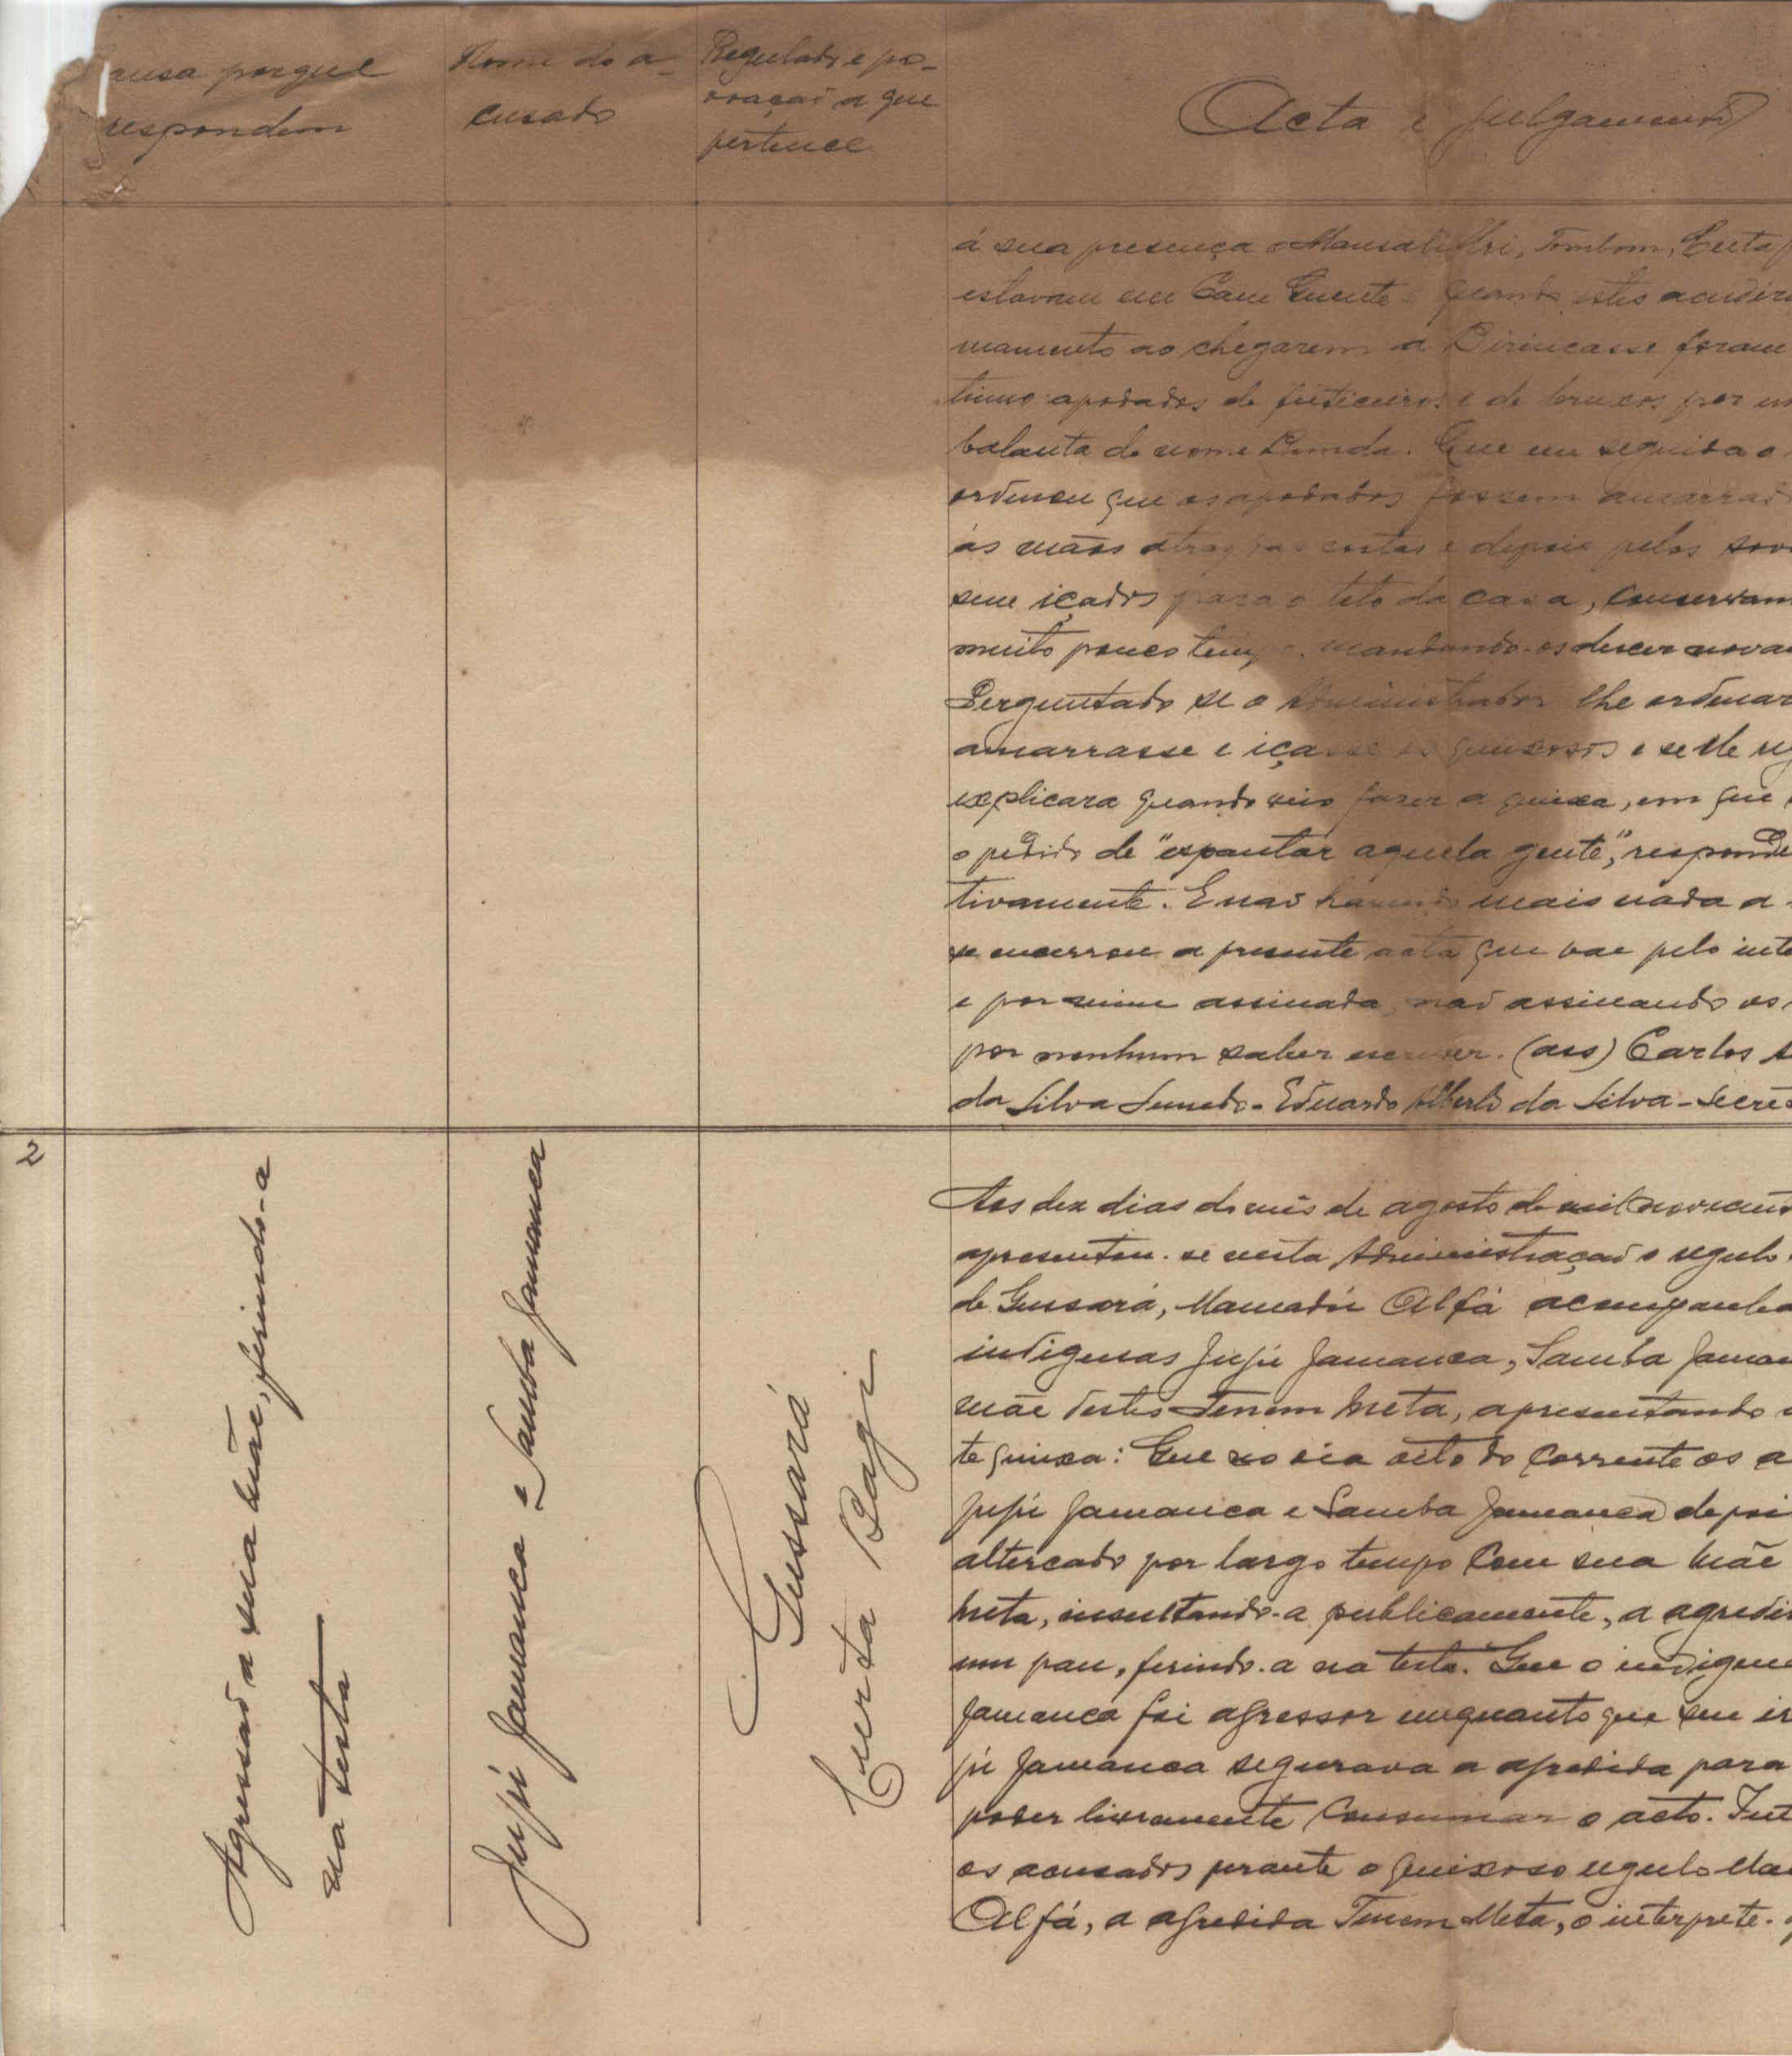 ausa porque
respondem
Nome do a-
cusado
Regulado e po-
voação a que
pertence
Acta e julgamento
á sua presença o Mansal Tombom,
estavam em Cam Quente e quando estes acudir
mamento ao chegarem a Birincasse foram
timo apodados de feiticeiros e de bruxos por um
balanta de nome Que em seguida o
ordenou que os apodados fossem amarrad
ás mãos atraz das costas e depois pelos sov
sem içados para o teto da casa, conservan
muito pouco tempo, mandando-os descer nova
Perguntado se o Administrador lhe ordenar
amarrasse e içasse os queixosos e se lhe
explicara quando veio fazer a queixa, em que
o pedido de "espantar aquela gente", responde
tivamente. E não havendo mais nada a
se encerrou a presente acta que vae pelo inte
e por mim assinada, não assinando os
por nenhum saber escrever. (ass) Carlos A
da Silva - Eduardo Alberto da Silva - Secre
2
Agressão a sua mãe, ferindo-a
na testa
Jupú Jamanca e Samba Jamanca
Gussará
Curta Bagi
Aos dez dias do mês de agosto de mil novecent
apresentou-se nesta Administração o regulo
de Gussará, Mamadú Alfá acompanha
indigenas Jupú Jamanca, Samba Jaman
mãe destes Tenem Meta, apresentando
te queixa: Que no dia oito do corrente os a
Jupú Jamanca e Samba Jamanca depoi
altercado por largo tempo com sua mãe
Meta, insultando-a publicamente, a agredi
um pau, ferindo-a na testa. Que o indigen
Jamanca foi agressor emquanto que seu ir
pú Jamanca segurava a agredida para
poder livremente consumar o acto.
os acusados perante o queixoso regulo Ma
Alfá, a agredida Tenem Meta, o interprete